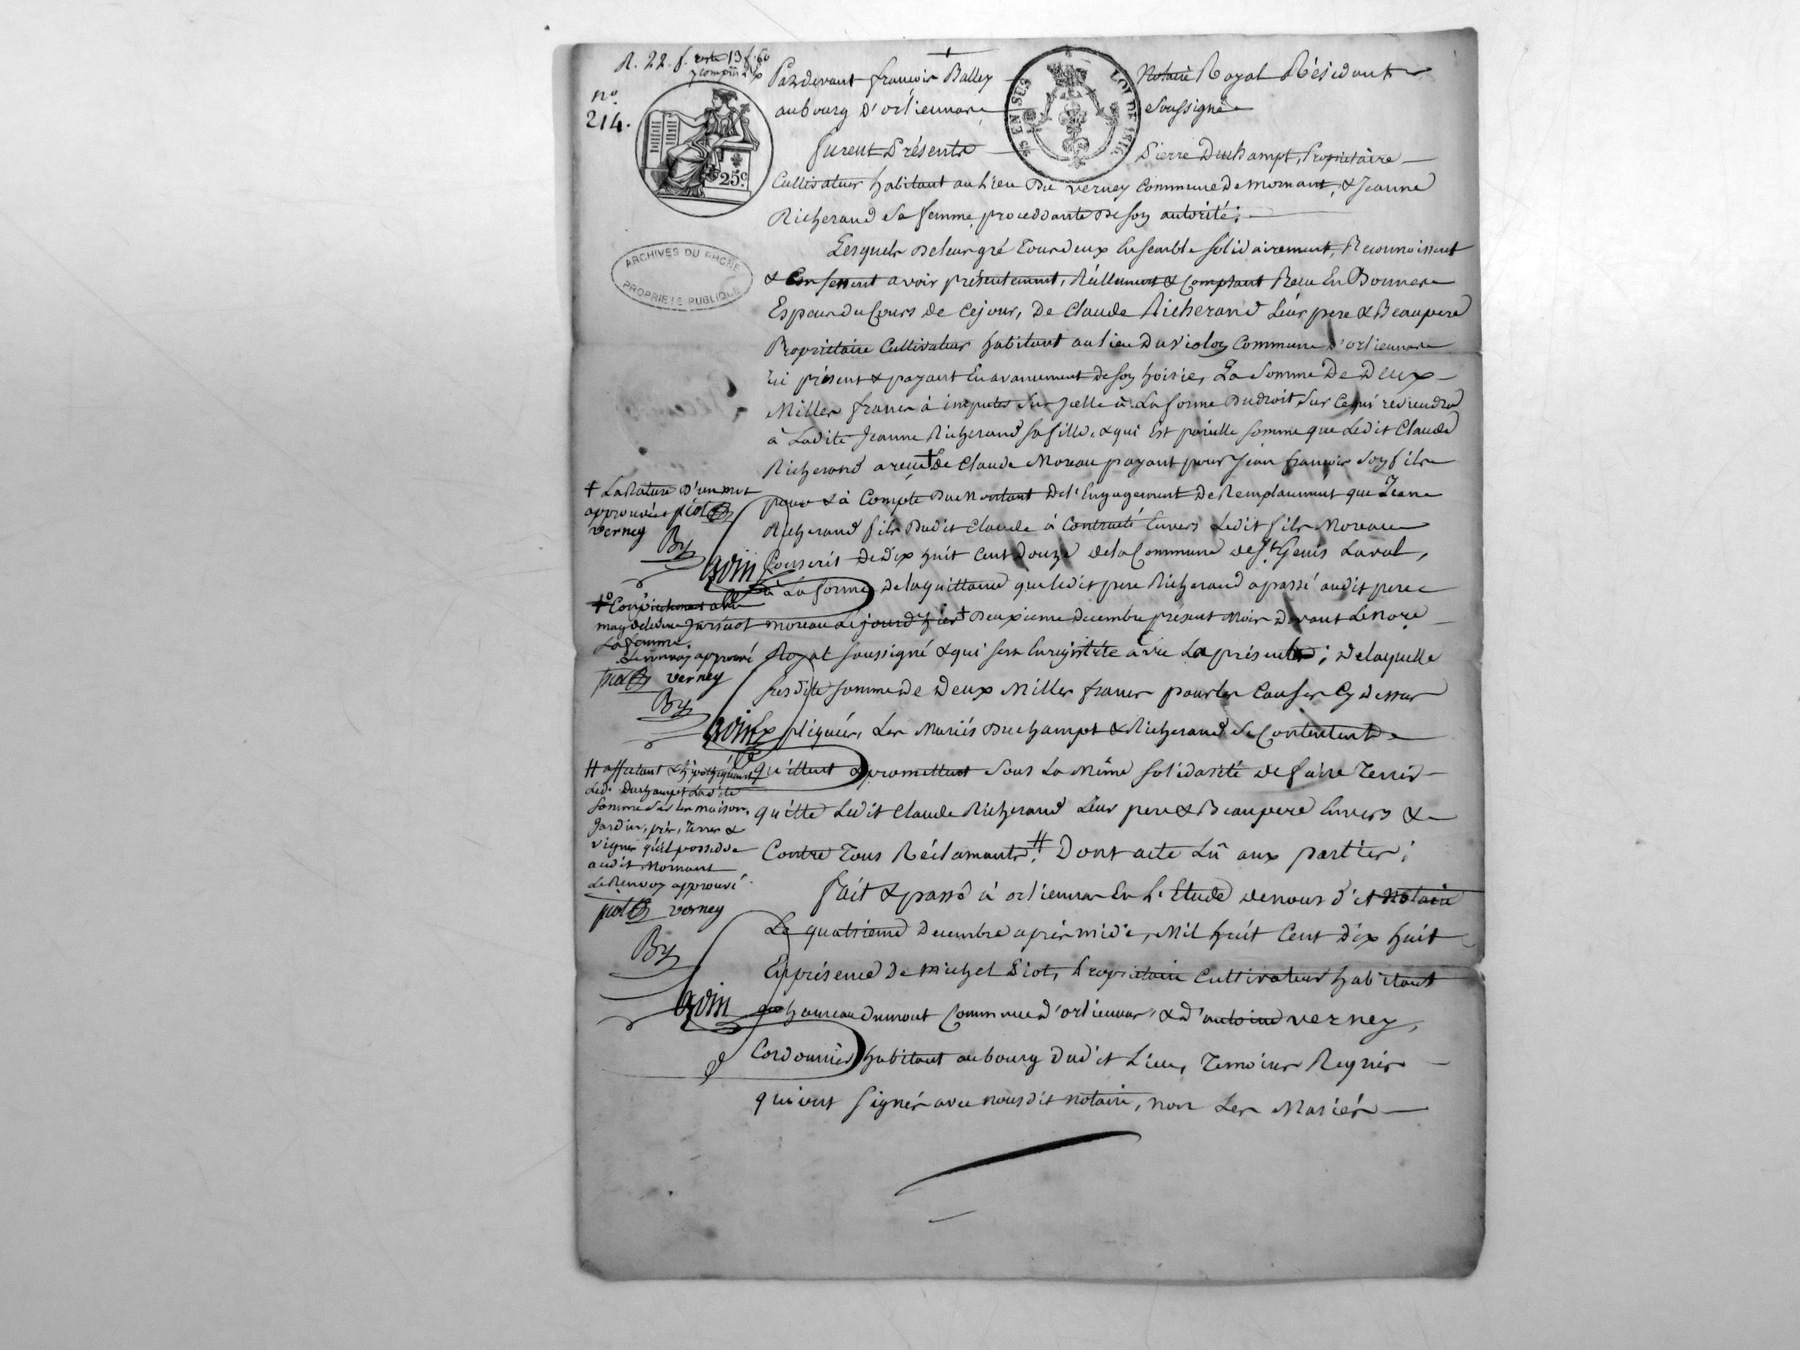 R. 22. f. reste 19 f. 60
y compris le Xe
n°
214.
25c.
25 EN SUS LOI DE 1816
ARCHIVES DU RHONE
PROPRIETE PUBLIQUE
Pardevant françois Balley Notaire Royal Résidant
au bourg d'orlienas soussigné
furent Présents Pierre Duchampt, Propriétaire
Cultivateur habitant au lieu du verney Commune de mornant, & Jeanne
Richerand sa femme, procedante de son autorité;
Lesquels de leur gré tous deux Ensemble solidairement, Reconnoissent
& Confessent avoir présentement, Réellement & Comptant Recu En Bonnes
Especes du Cours de ce jour, de Claude Richerand Leur pere & Beaupere
Propriétaire Cultivateur habitant au lieu du violon Commune d'orlienas
ici présent & payant En avancement de son hoirie, La Somme De Deux
Milles francs à imputer sur icelle à La forme du droit sur Ce qui reviendra
à Ladite Jeanne Richerand sa fille, & qui Est pareille somme que Ledit Claude
Richerand a recue de Claude Moreau payant pour Jean françois son fils
pour & à Compte du Montant de l'Engagement de Remplacement que
Richerand fils dudit Claude à Contracté Envers Ledit fils Moreau
Conscrit de dix huit Cent douze de la Commune de St Genis Laval,
à La forme de la quittance que ledit pere Richerand a passé audit pere
moreau Le jourd'hier deuxieme decembre présent Mois devant Le No.re
Royal soussigné & qui sera Enregistrée avec La présente; de laquelle
susdite somme de Deux Milles francs pour les Causes Cy dessus
Expliquées, Les Mariés Duchampt & Richerand se Contentent
quittent & promettent sous La Même solidarité de faire tenir
quitte Ledit Claude Richerand Leur pere & Beaupere Envers &
Contre tous Réclamants # Dont acte Lû aux parties;
fait & passé à orlienas En L'Etude de nous dit Notaire
Le quatrieme Decembre après midi, Mil huit Cent dix huit
En présence de Michel Piot, Propriétaire Cultivateur habitant
au hameau dumont Commune d'orlienas & d'antoine verney,
Cordonnier habitant au bourg dudit Lieu, temoins Requis
qui ont signés avec nous dit notaire, non Les Mariés
† La Rature d'un mot
approuvée piot
verney
By
La femme.
Le renvoy approuvé
piot verney
By
# affectant & hypothéquant
Led. Duchampt Ladite
somme sur les maison,
Jardin, près, terres &
vignes qu'il possede
audit Mornant
Le Renvoy approuvé
piot verney
By